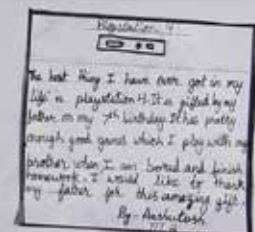 Playstation 4
The best thing I have ever got in my
life is playstation 4. It is gifted by my
father on my 7th birthday. It has pretty
enough good games which I play with my
brother when I am bored and finish
homework. I would like to thank
my father for this amazing gift.
By - Aashutosh